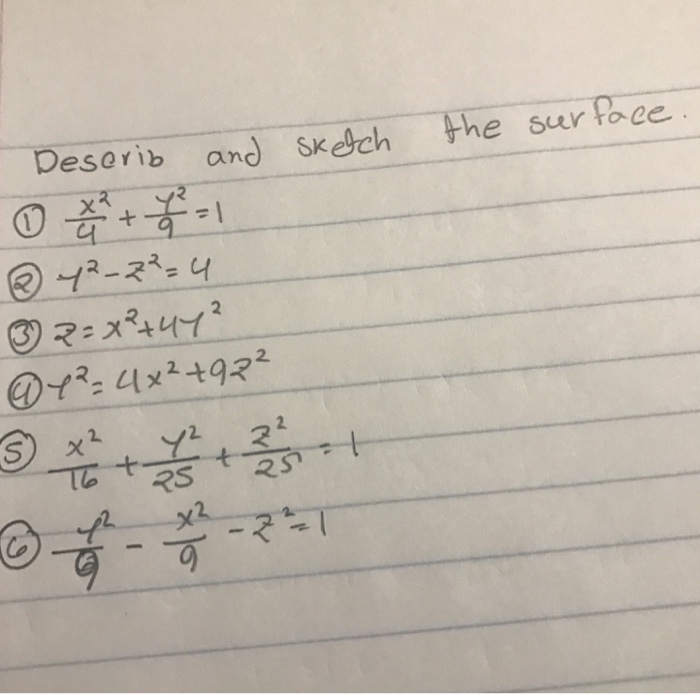 Describ and sketch the surface.
① x²/4 + y²/9 = 1
② y² - z² = 4
③ z = x² + 4y²
④ y² = 4x² + 9z²
⑤ x²/16 + y²/25 + z²/25 = 1
⑥ y²/9 - x²/9 - z² = 1